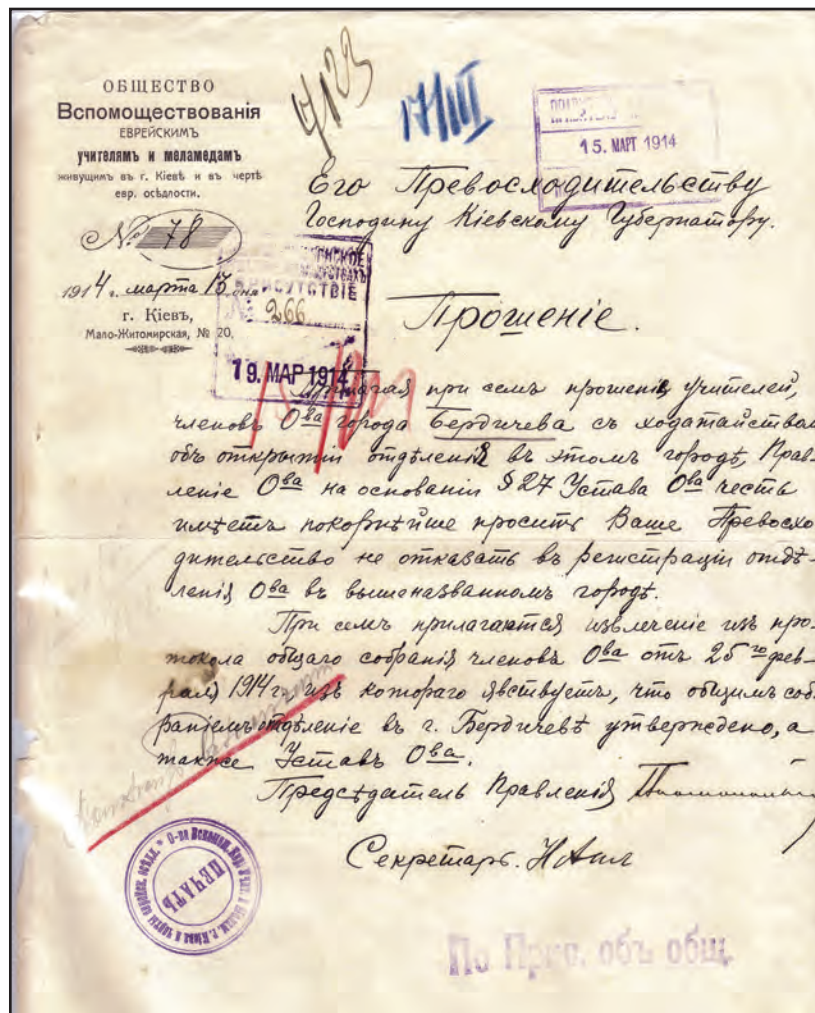 ОБЩЕСТВО
Вспомоществованія
ЕВРЕЙСКИМЪ
учителямъ и меламедамъ
живущимъ въ г. Кіевѣ и въ чертѣ
евр. осѣдлости.
№ 78
1914 г. марта 13 дня
г. Кіевъ,
Мало-Житомирская, № 20.
4123
17/III
15. МАРТ 1914
Его Превосходительству
Господину Кіевскому Губернатору.
ПРИСУТСТВІЕ
№ 266
19. МАР 1914
Прошеніе.
Прилагая при семъ прошеніе учителей,
членовъ О-ва города Бердичева съ ходатайствомъ
объ открытіи отдѣленія въ этомъ городѣ, Прав-
леніе О-ва на основаніи § 27 Устава О-ва честь
имѣетъ покорнѣйше просить Ваше Превосхо-
дительство не отказать въ регистраціи отдѣ-
ленія О-ва въ вышеназванномъ городѣ.
При семъ прилагаются извлеченіе изъ про-
токола общаго собранія членовъ О-ва отъ 25го фев-
раля 1914 г., изъ котораго явствуетъ, что общимъ соб-
раніемъ отдѣленіе въ г. Бердичевѣ утверждено, а
также Уставъ О-ва.
Предсѣдатель Правленія
Секретарь.
ПЕЧАТЬ
По Прис. объ общ.